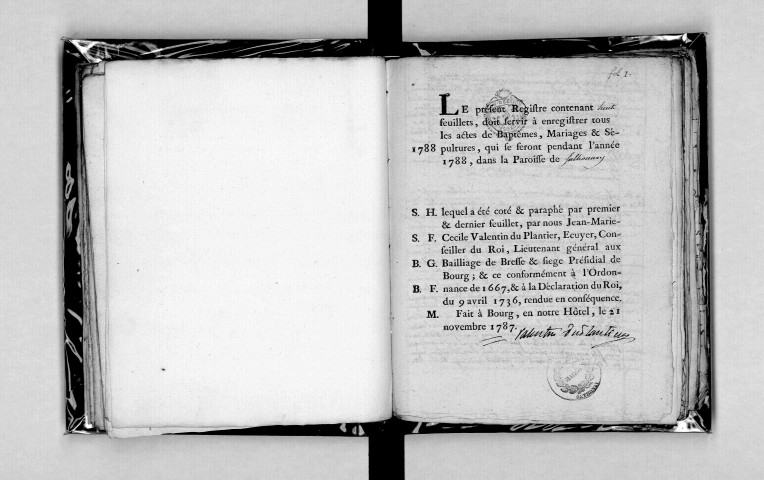 fol 1.
LE préſent Regiſtre contenant huit
feuillets, doit ſervir à enregiſtrer tous
les actes de Baptêmes, Mariages & Sé-
1788 pultures, qui ſe feront pendant l'année
1788, dans la Paroiſſe de
S. H. lequel a été coté & paraphé par premier
& dernier feuillet, par nous Jean-Marie-
S. F. Cecile Valentin du Plantier, Ecuyer, Con-
ſeiller du Roi, Lieutenant général aux
B. G. Bailliage de Breſſe & ſiege Préſidial de
Bourg; & ce conformément à l'Ordon-
B. F. nance de 1667, & à la Déclaration du Roi,
du 9 avril 1736, rendue en conſéquence.
M. Fait à Bourg, en notre Hôtel, le 21
novembre 1787.
Valentin Duplantier